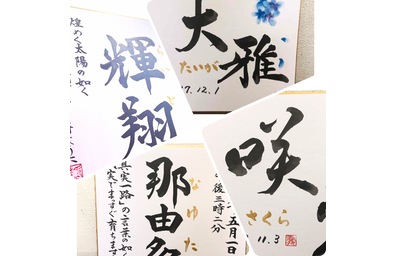 煌めく太陽の如く
輝翔
大雅
たいが
17.12.1
那由多
なゆた
真実一路」の言葉の如
実でまっすぐ育ちます
五月一日
後三時二分
咲
さくら
11.3